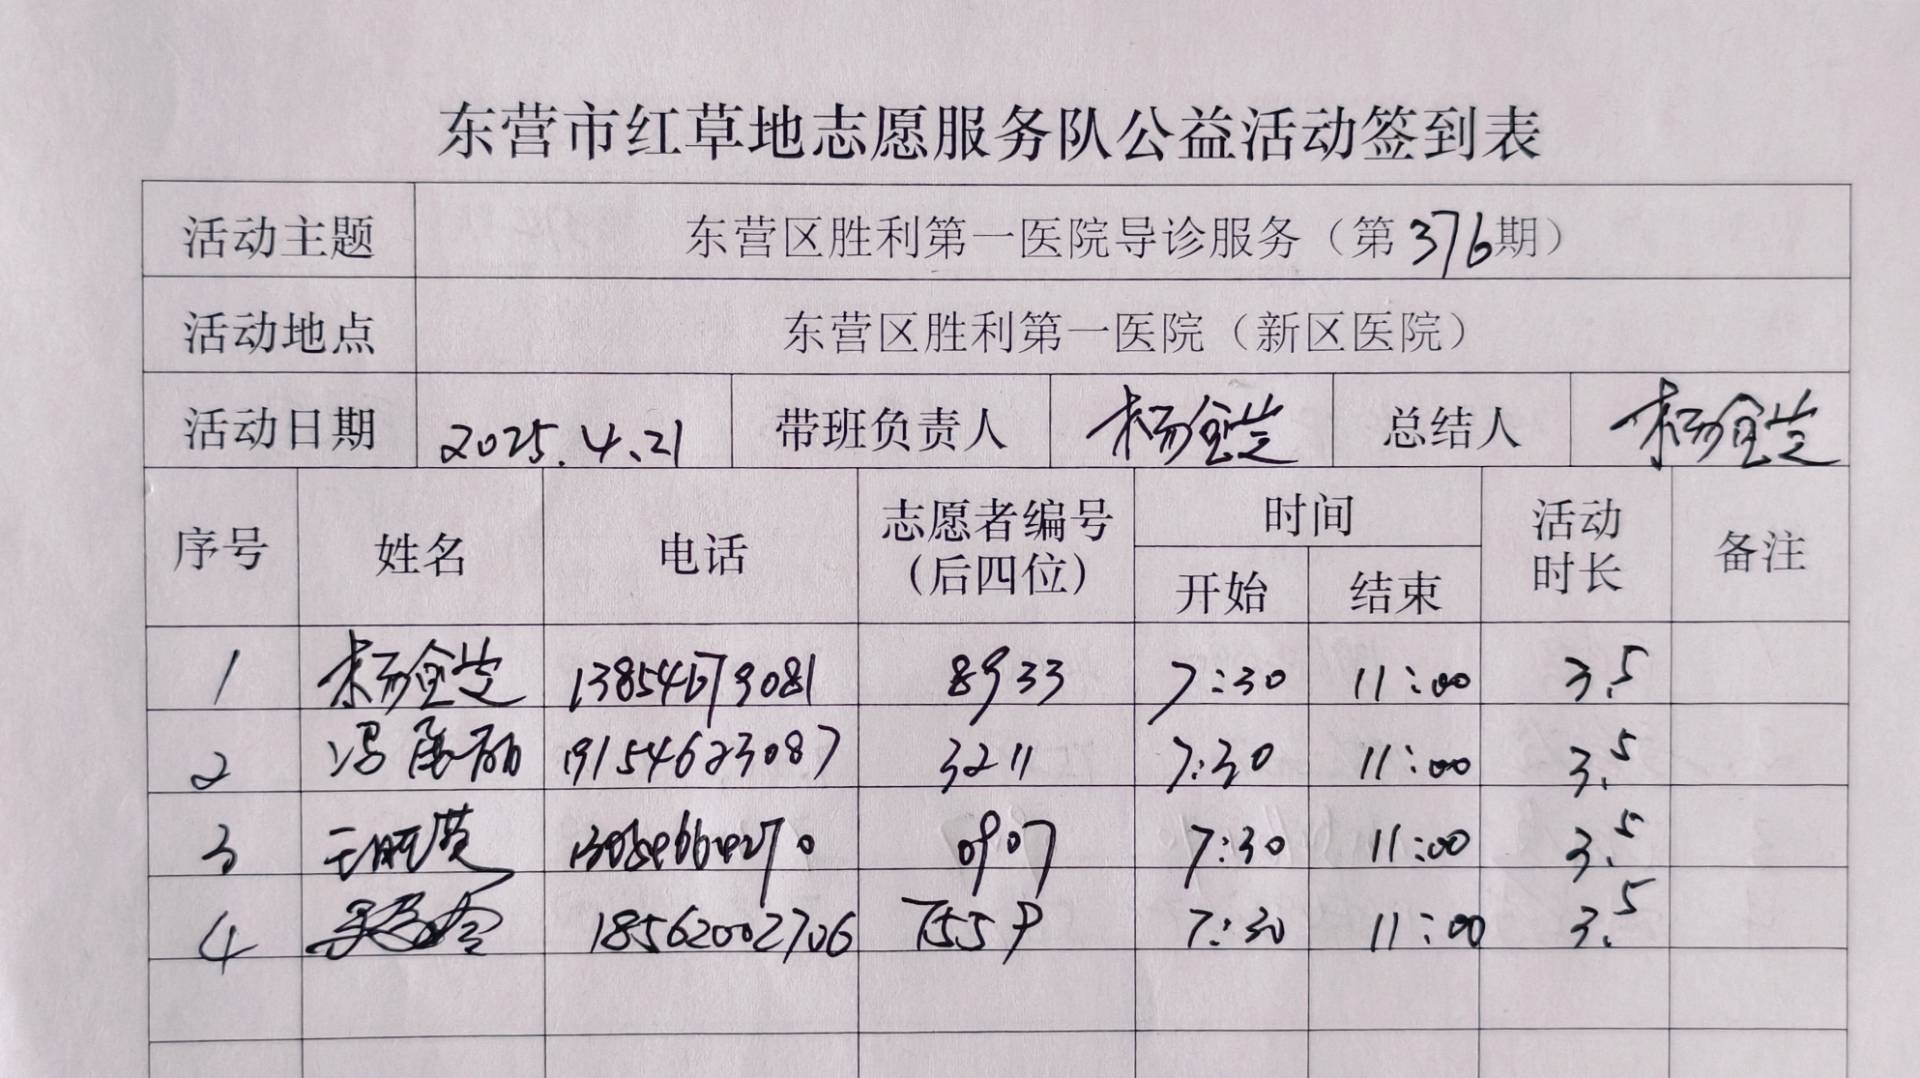 东营市红草地志愿服务队公益活动签到表
活动主题 东营区胜利第一医院导诊服务（第376期）
活动地点 东营区胜利第一医院（新区医院）
活动日期 2025.4.21 带班负责人 杨金芝 总结人 杨金芝
序号 姓名 电话 志愿者编号（后四位） 时间 开始 结束 活动时长 备注
1 杨金芝 13854679081 8933 7:30 11:00 3.5
2 冯展丽 19154623087 3211 7:30 11:00 3.5
3 王 0907 7:30 11:00 3.5
4 18562002706 7:30 11:00 3.5